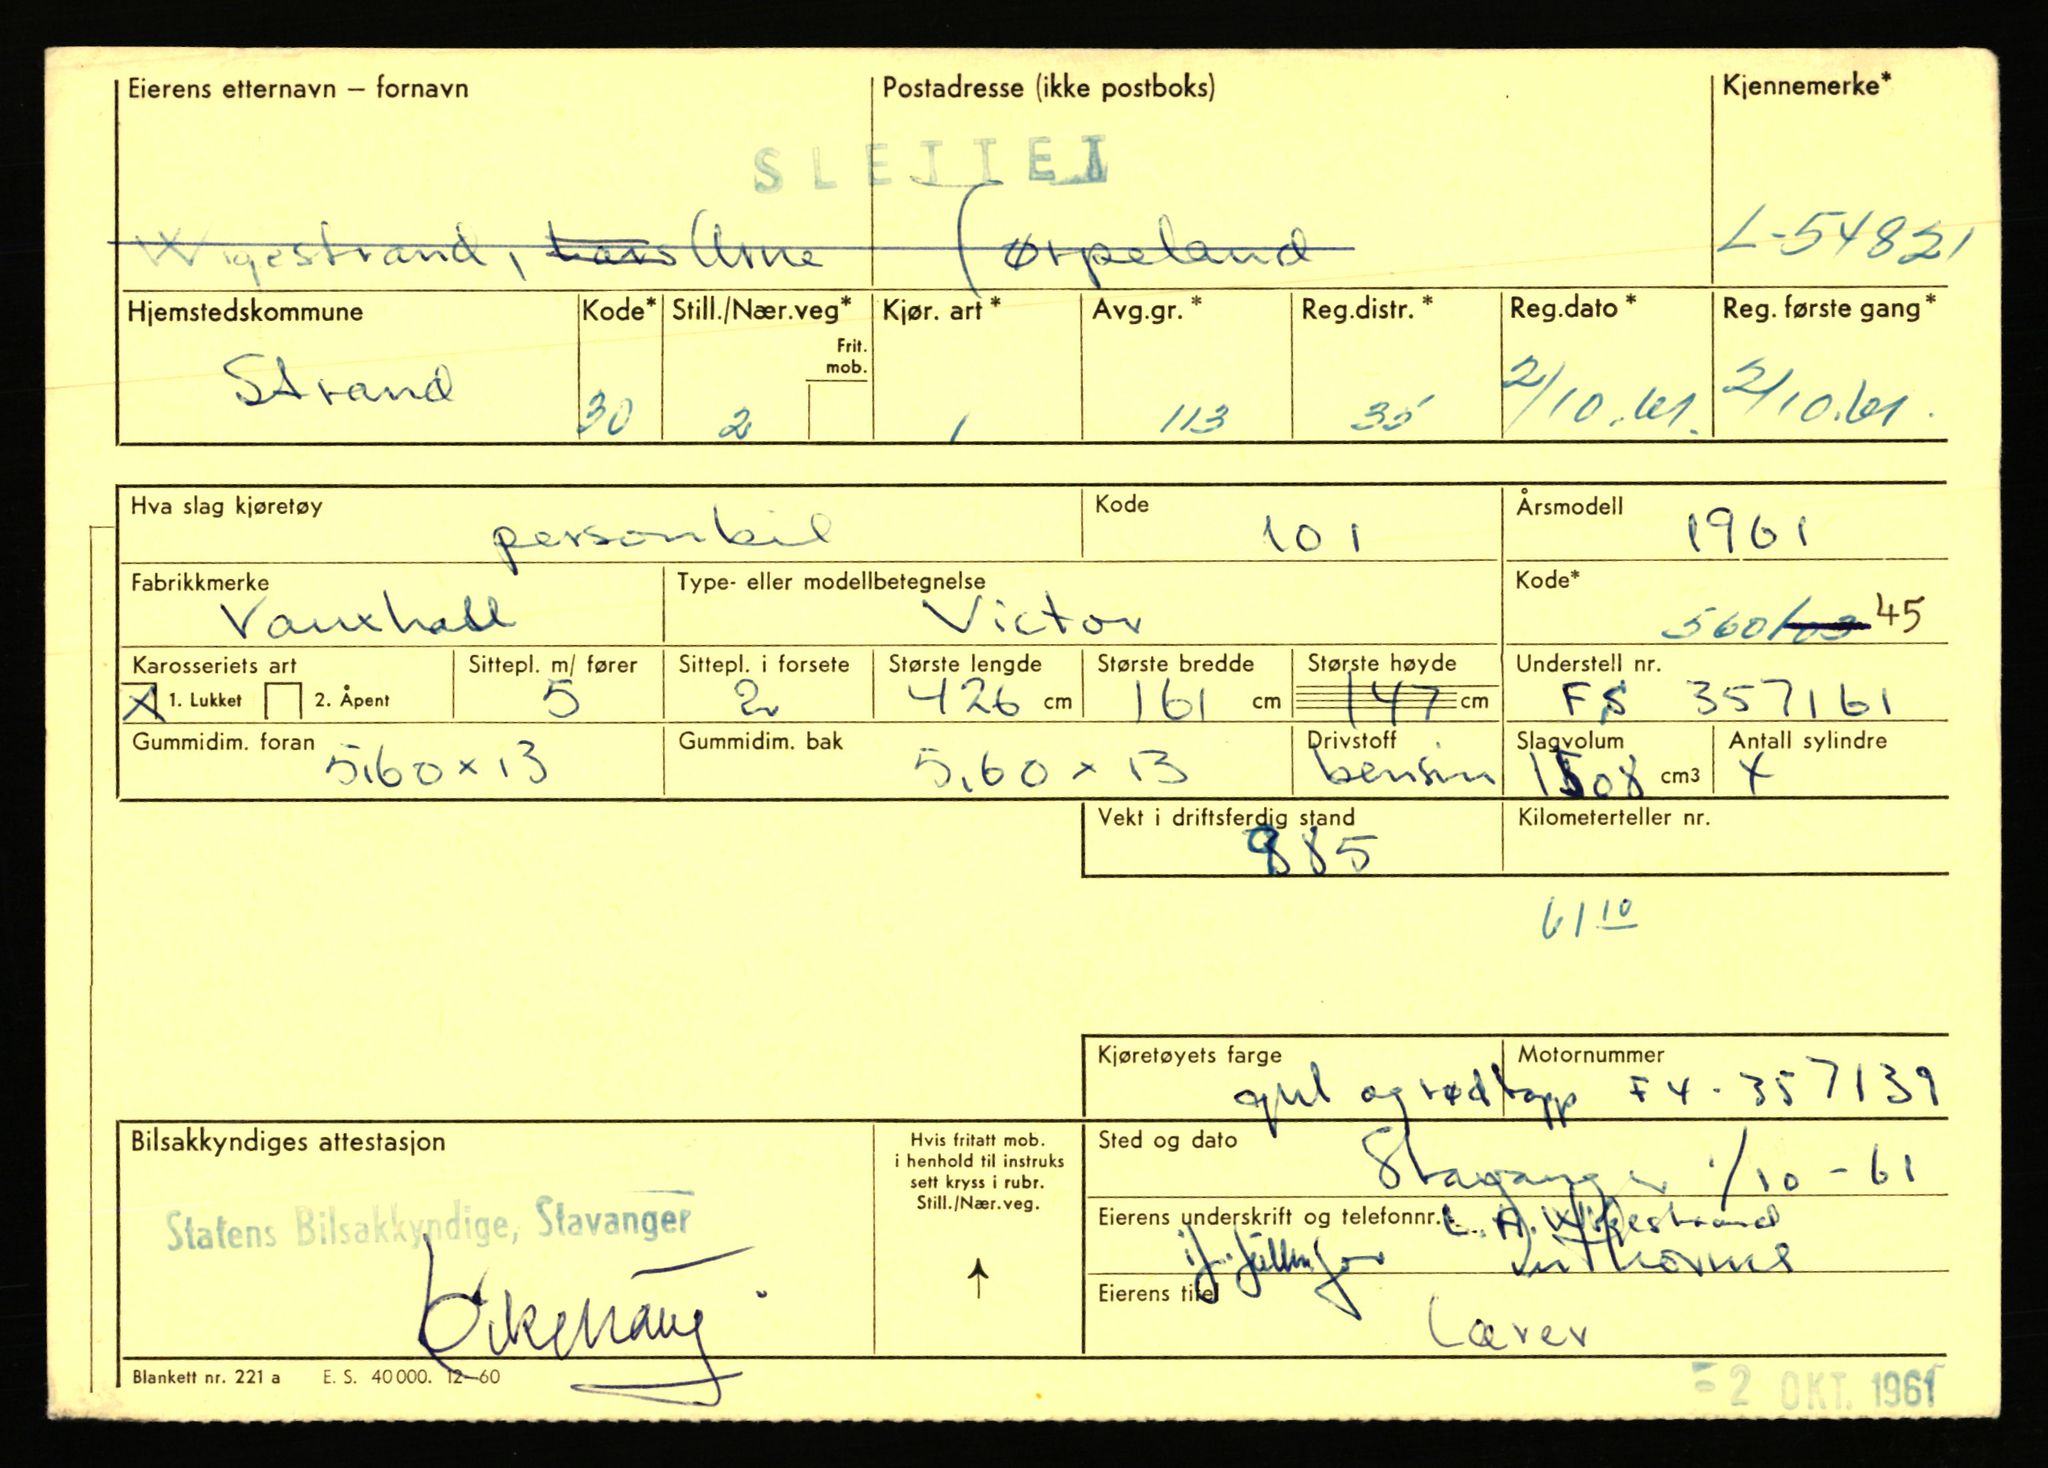 Eierens etternavn – fornavn Postadresse (ikke postboks) Kjennemerke*
SLETTET
Wigestrand, Lars Arne Jørpeland L-54821
Hjemstedskommune Kode* Still./Nær.veg* Kjør. art* Avg.gr.* Reg.distr.* Reg.dato* Reg. første gang*
Frit.
mob.
Strand 30 2 1 113 35 2/10.61. 2/10.61.
Hva slag kjøretøy Kode Årsmodell
personbil 101 1961
Fabrikkmerke Type- eller modellbetegnelse Kode*
Vauxhall Victor 560/03 45
Karosseriets art Sittepl. m/ fører Sittepl. i forsete Største lengde Største bredde Største høyde Understell nr.
X 1. Lukket 2. Åpent 5 2 426 cm 161 cm 147 cm FS 357161
Gummidim. foran Gummidim. bak Drivstoff Slagvolum Antall sylindre
5,60 x 13 5,60 x 13 bensin 1508 cm3 4
Vekt i driftsferdig stand Kilometerteller nr.
985
61 10
Kjøretøyets farge Motornummer
gul og rød topp F4-357139
Bilsakkyndiges attestasjon Hvis fritatt mob. Sted og dato
i henhold til instruks
sett kryss i rubr.
Still./Nær.veg.
Stavanger 1/10-61
Statens Bilsakkyndige, Stavanger
Eierens underskrift og telefonnr. L. A. Wigestrand
Eierens titel
Lærer
Blankett nr. 221 a E. S. 40 000. 12–60
2 OKT. 1961